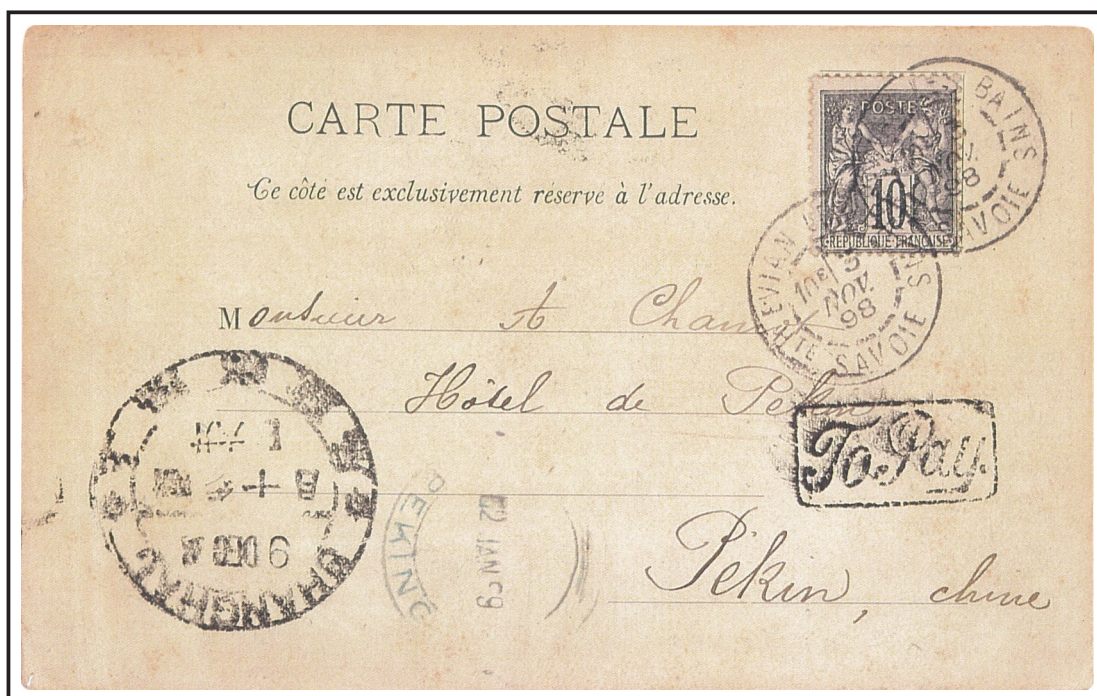 CARTE POSTALE
Ce côté est exclusivement réservé à l'adresse.
POSTE
10
REPUBLIQUE FRANÇAISE
BAINS
98
SAVOIE
EVIAN
5
NOV.
98
HTE SAVOIE
Monsieur A
Hôtel de Pékin
To Pay.
Pékin, chine
PEKING
2 JAN 99
9 DEC
SHANGHAI